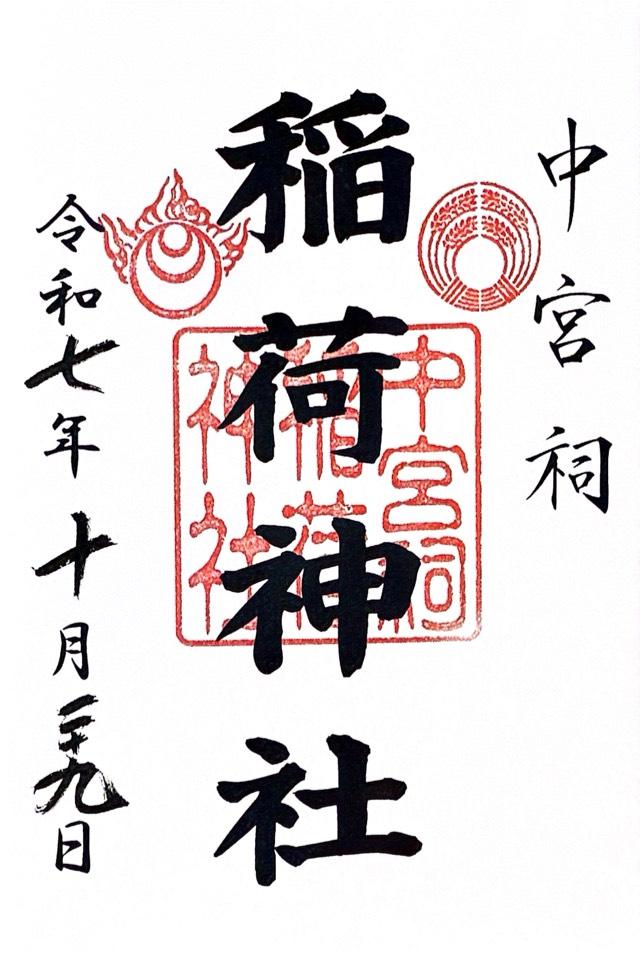 中宮祠
稲荷神社
中宮祠
稲荷
神社
令和七年十月二十九日